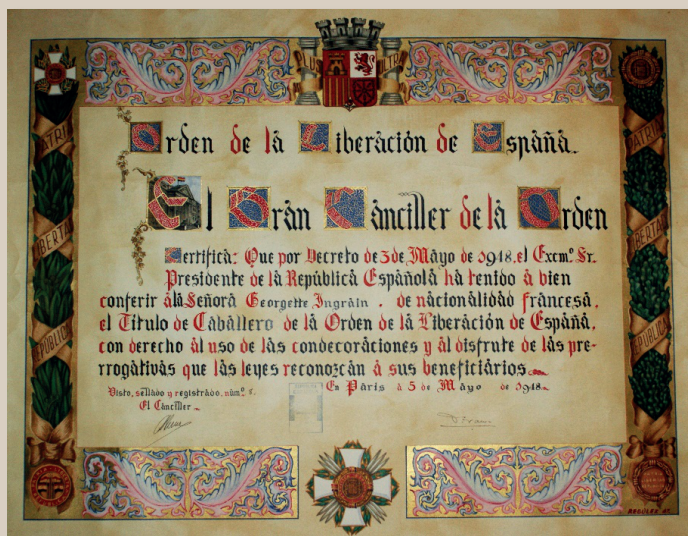 PLUS ULTRA
Orden de la Liberación de España.
El Gran Canciller de la Orden
Certifica: Que por Decreto de 3 de Mayo de 1948, el Excmº. Sr.
Presidente de la República Española ha tenido á bien
conferir á la Señora Georgette Ingrain, de nacionalidad francesa,
el Título de Caballero de la Orden de la Liberación de España,
con derecho al uso de las condecoraciones y al disfrute de las pre-
rrogativas que las leyes reconozcan á sus beneficiários
En París á 5 de Mayo de 1948
Visto, sellado y registrado, núm.º 8.
El Canciller
PATRIA
LIBERTAD
REPÚBLICA
PATRIA
LIBERTAD
REPÚBLICA